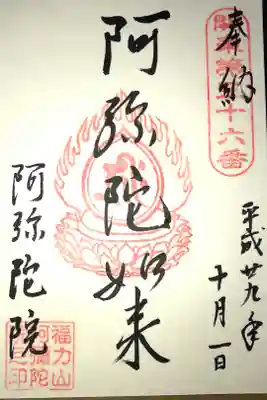 奉納
十六番
平成廿九年
十月一日
阿弥陀如来
阿弥陀院
福力山
阿弥陀
院之印